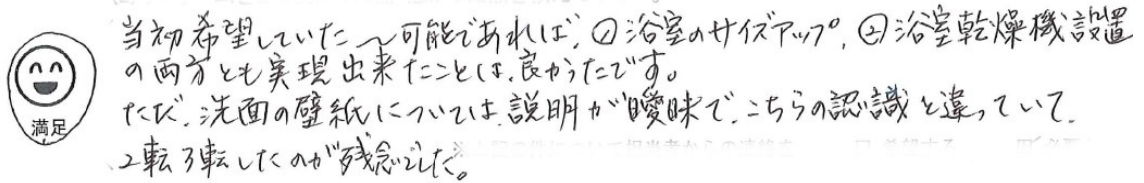 当初希望していた〜可能であれば、①浴室のサイズアップ、②浴室乾燥機設置
の両方とも実現出来たことは、良かったです。
ただ、洗面の壁紙については、説明が曖昧で、こちらの認識と違っていて、
2転3転したのが残念でした。
満足